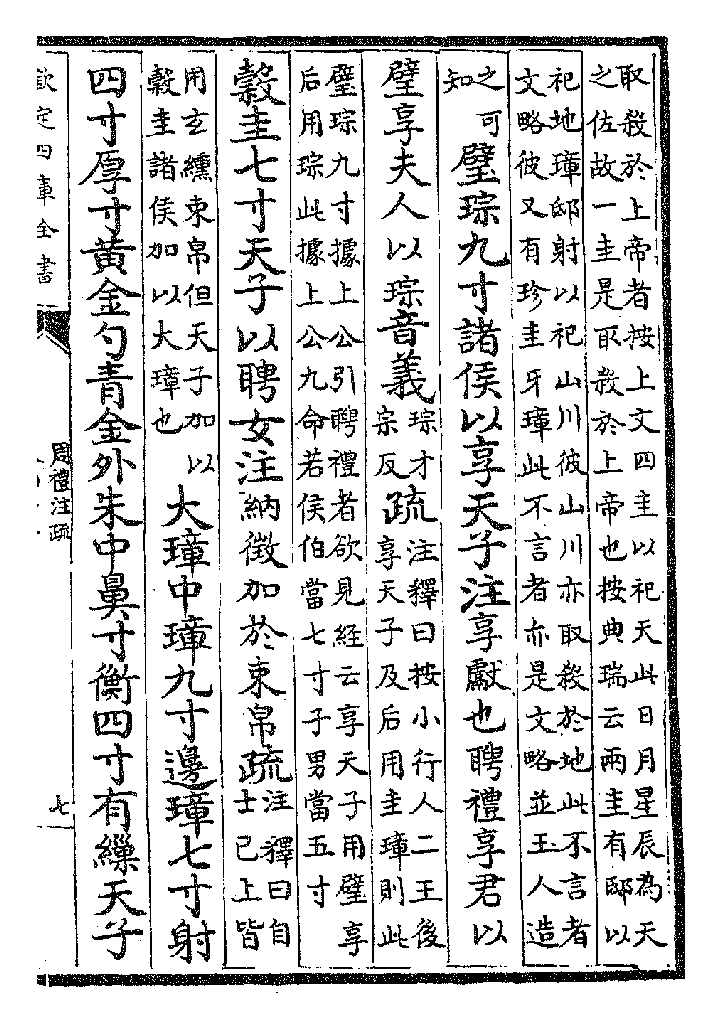 取殺於上帝者按上文四圭以祀天此日月星辰為天
之佐故一圭是取殺於上帝也按典瑞云兩圭有邸以
祀地璋邸射以祀山川彼山川亦取殺於地此不言者
文略彼又有珍圭牙璋此不言者亦是文略並玉人造
之可
知
璧琮九寸諸侯以享天子注享獻也聘禮享君以
璧享夫人以琮音義
琮才
宗反
疏
注釋曰按小行人二王後
享天子及后用圭璋則此
璧琮九寸據上公引聘禮者欲見經云享天子用璧享
后用琮此據上公九命若侯伯當七寸子男當五寸
穀圭七寸天子以聘女注納徵加於束帛疏
注釋曰自
士已上皆
用玄纁束帛但天子加以
穀圭諸侯加以大璋也
大璋中璋九寸邊璋七寸射
四寸厚寸黃金勺青金外朱中鼻寸衡四寸有繅天子
欽定四庫全書
周禮注疏
七